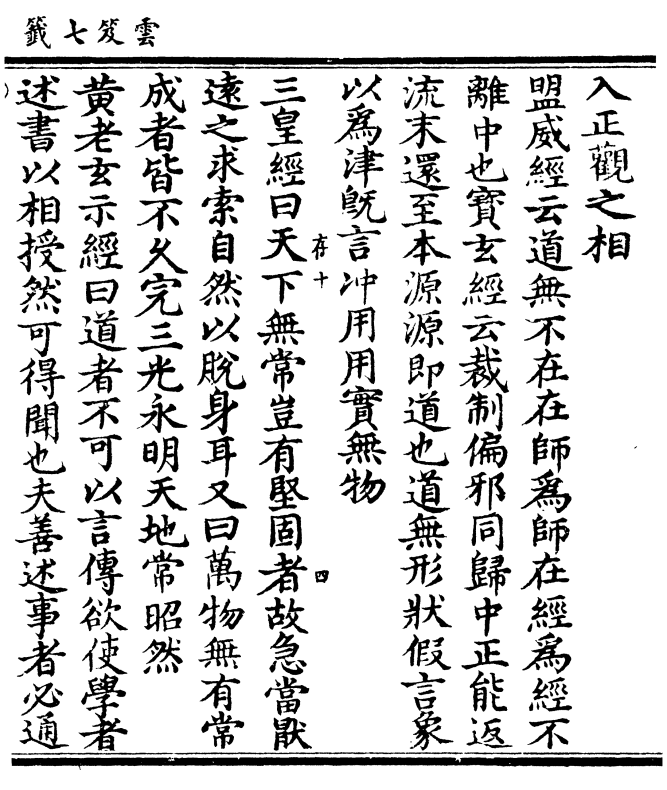 雲笈七籤
入正觀之相
盟威經云道無不在在師爲師在經爲經不
離中也寶玄經云裁制偏邪同歸中正能返
流末還至本源源即道也道無形狀假言象
以爲津旣言冲用用實無物
存十 四
三皇經曰天下無常豈有堅固者故急當猒
遠之求索自然以脫身耳又曰萬物無有常
成者皆不乆完三光永明天地常昭然
黄老玄示經曰道者不可以言傳欲使學者
述書以相授然可得聞也夫善述事者必通